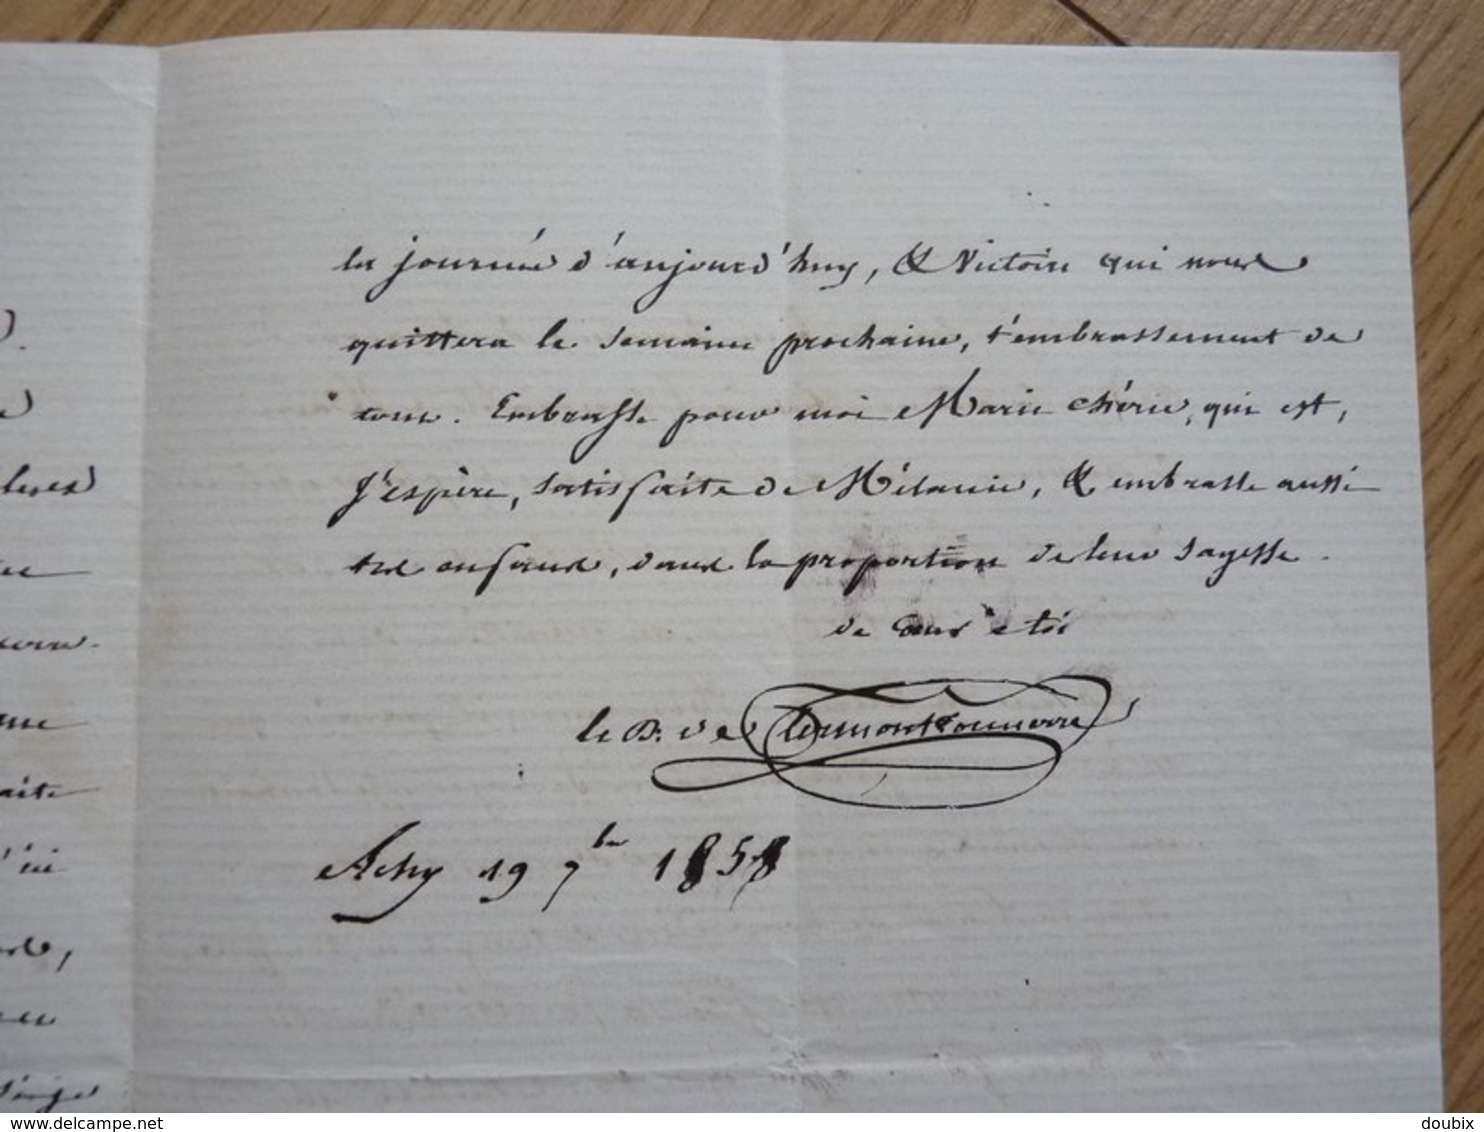 la journée d'aujourd'huy, & Victoire qui nous
quittera la semaine prochaine, t'embrassement de
tous. Embrasse pour moi Marie chérie, qui est,
j'espère, satisfaite de Mélanie, & embrasse aussi
tes enfans, dans la proportion de leur sagesse.
de coeur à toi
le D. de Clermont Tonnerre
Achy 19 7bre 1858
doubix